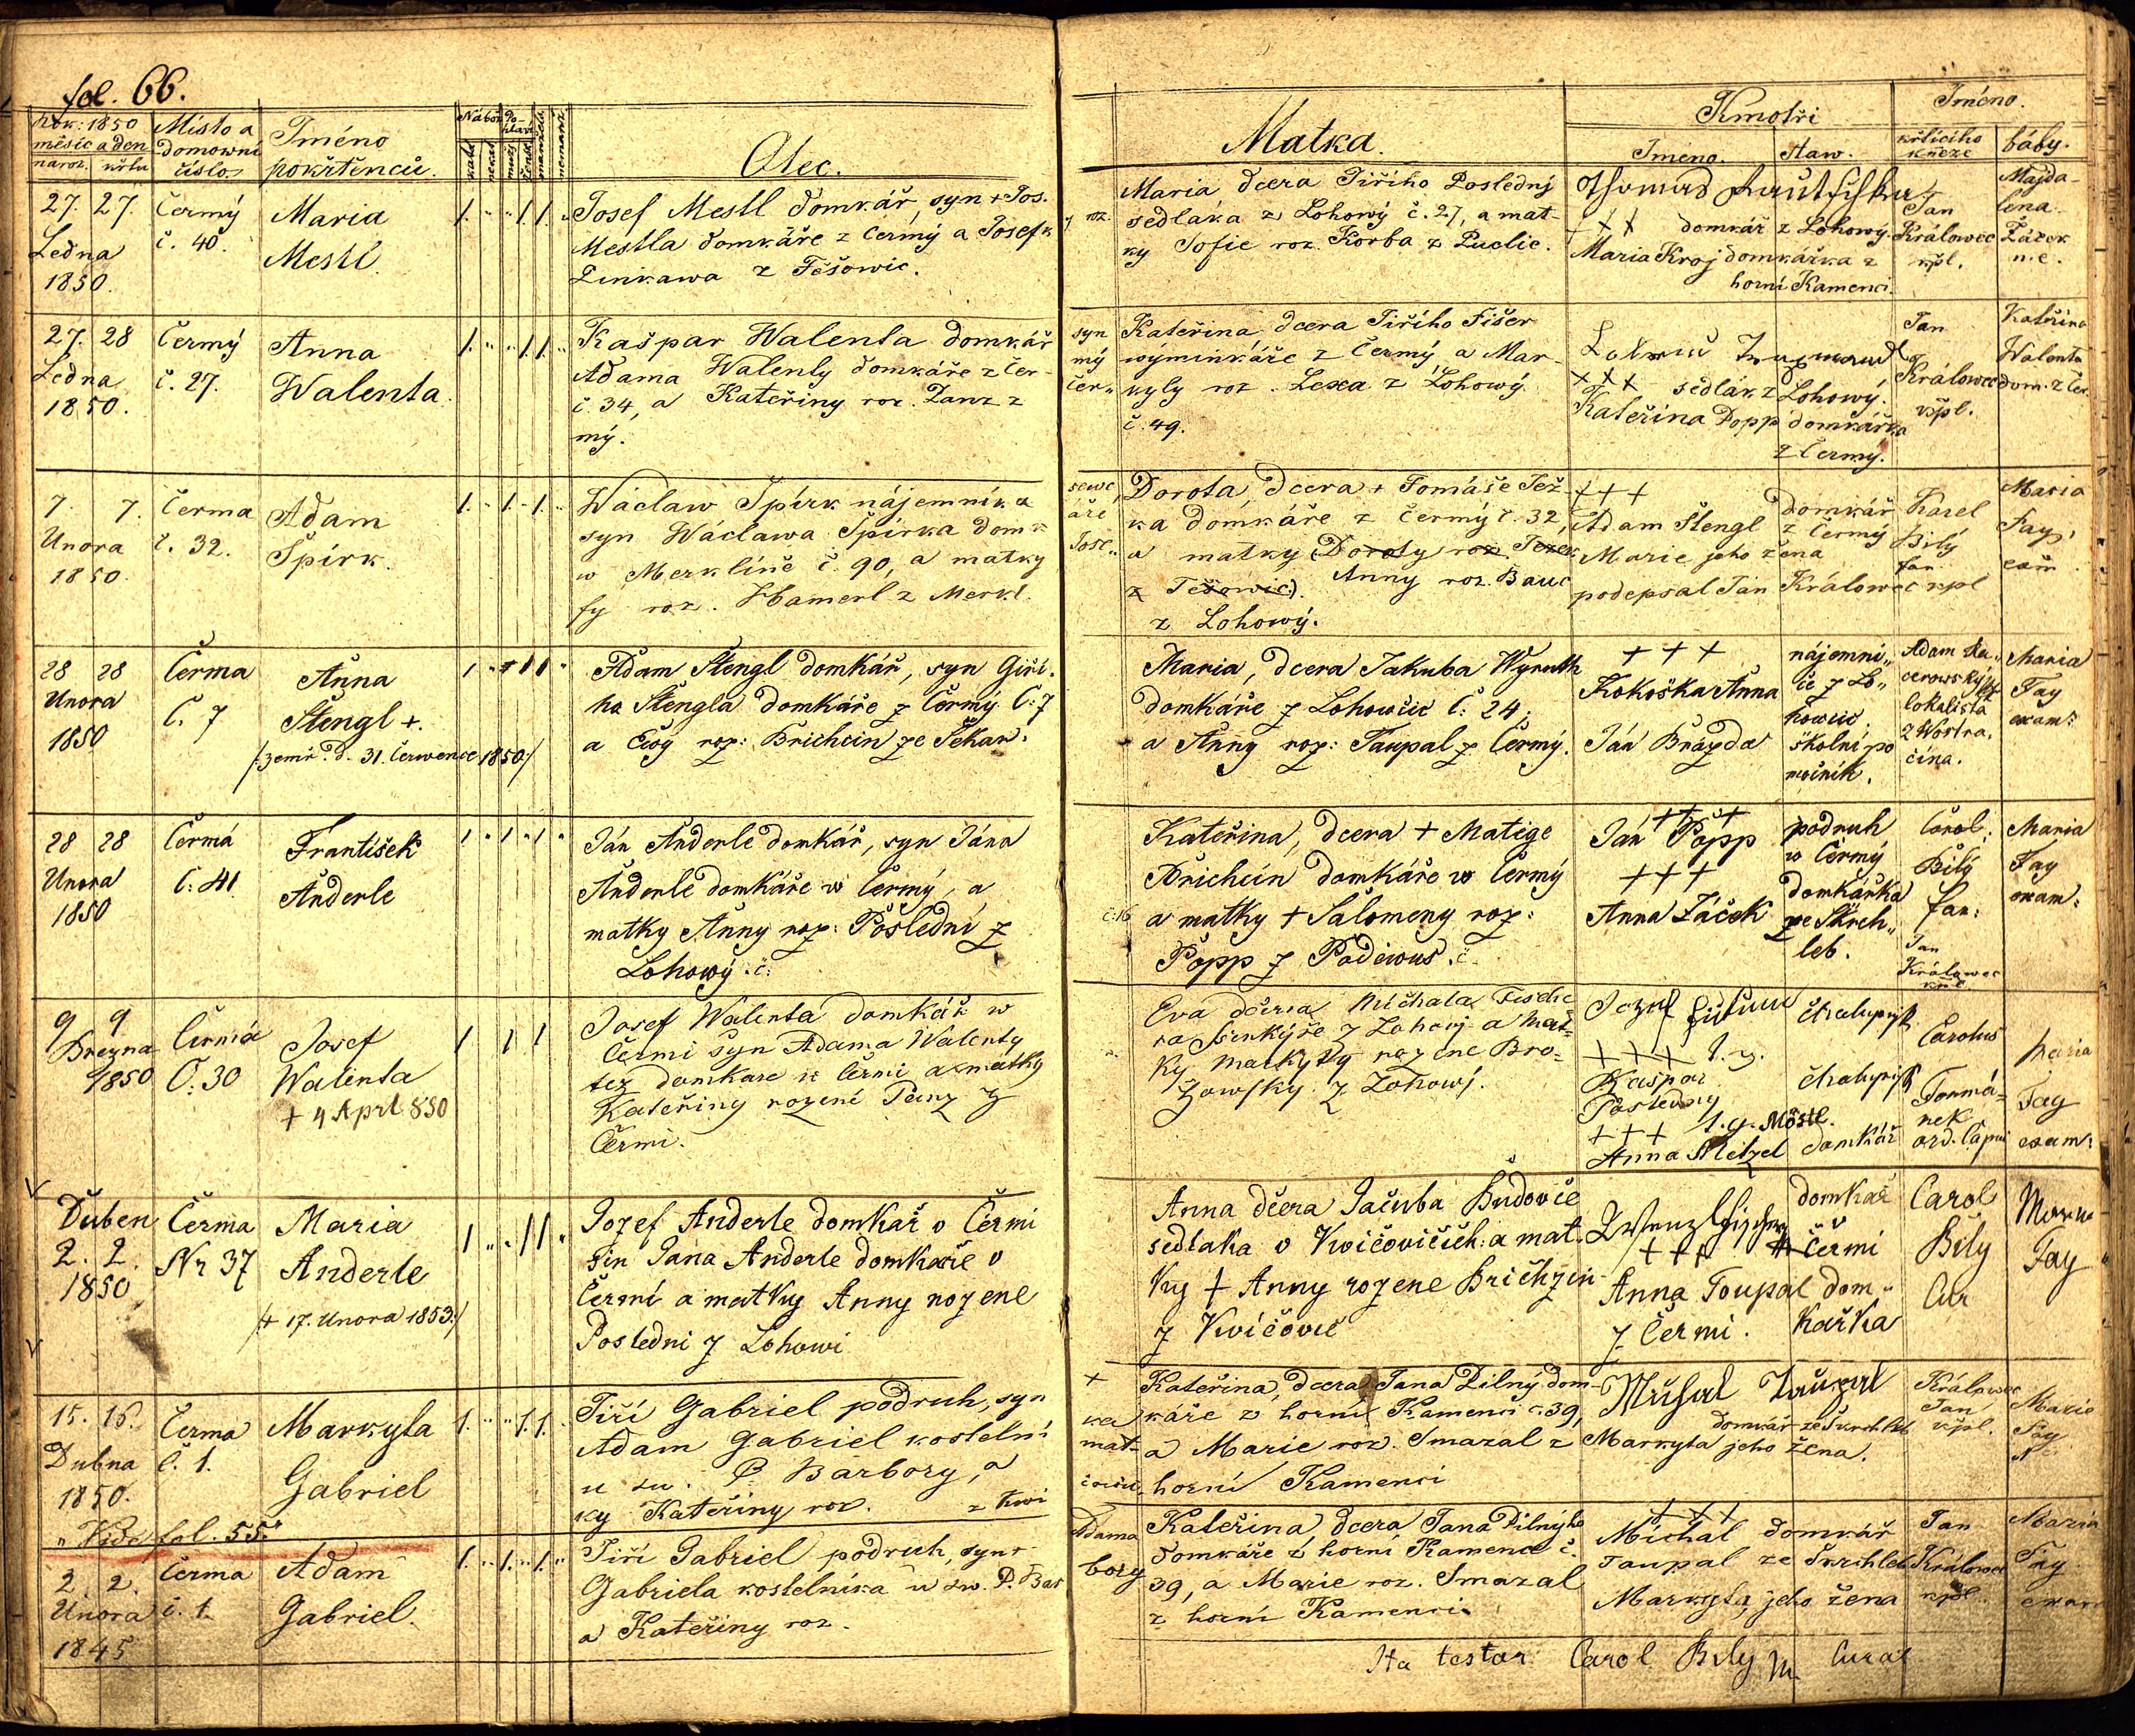 fol. 66.
Rok: 1850
měsíc a den
naroz. křtu
Místo a
domowní
číslo.
Jméno
pokřtěnců.
Nábož.
Po-
hlaví
Otec.
Matka.
Kmotři
Jméno.
Staw.
Jméno.
křtícího
kněze
báby.
27. 27.
Ledna
1850.
Čermý
č. 40.
Maria
Mestl
Josef Mestl domkář, syn + Jos.
Mestla domkáře z Čermý a Josefk
Linkawa z Těšowic.
y roz.
Maria dcera Jiřího Poslední
sedláka z Lohowý č. 27, a mat-
ky Sofie roz. Korba z Puclic.
Thomas
domkář z Lohowý.
Maria Kroj domkářka z
horní Kamenci.
Jan
Králowec
kpl.
Majda-
lena
Žáček
n. e.
27. 28
Ledna
1850.
Čermý
č. 27.
Anna
Walenta.
Kašpar Walenta domkář
Adama Walenty domkáře z Čer-
č. 34, a Kateřiny roz. Panz z
mý.
syn
mý
Čer„
Kateřina dcera Jiřího Fišer
wýminkáře z Čermý a Mar-
kyty roz. Lexa z Lohowý.
č. 49.
+++ sedlák z Lohowý.
Kateřina Popp domkářka
z Čermý.
Jan
Králowec
kpl.
Kateřina
Walenta
dom. z Čer.
7. 7.
Unora
1850.
Čerma
č. 32.
Adam
Špirk.
Wáclaw Špirk nájemník a
syn Wáclawa Špirka domk
w Merklíně č. 90, a matky
fy roz. Hamerl z Merkl.
sewc
áře
Jose„
Dorota, dcera + Tomáše Tež-
ka domkáře z Čermý č. 32,
a matky (Doroty roz. Težek
z Těšowic). Anny roz. Bauc
z Lohowý.
+++
Adam Štengl domkář
z Čermý
Marie jeho žena
podepsal Jan Králowec kpl
Karel
Bílý
far.
Maria
Fay
exam.
28 28
Unora
1850
Čerma
Č. 7
Anna
Štengl +.
/: zemř. d. 31. Července 1850:/
Adam Štengl domkář, syn Giří-
ho Štengla domkáře z Čermý Č: 7
a Ewy roz: Brichcin ze Sekan:
Maria, dcera Jakuba Wyruth
domkáře z Lohowčic Č: 24;
a Anny roz: Taupal z Čermý.
+++
Kokoška Anna
Ján Brázda
nájemni„
ce z Lo„
howčic.
školní po
mocník.
Adam Ka„
cerowský
lokalista
z Wostra„
čína.
Maria
Fay
exam:
28 28
Unora
1850
Čermá
Č: 41
František
Anderle
Ján Anderle domkář, syn Jána
Anderle domkáře w Čermý, a
matky Anny roz: Poslední z
Lohowý. č:
č. 16
Kateřina, dcera + Matěge
Brichcin domkáře w Čermý
a matky + Salomeny roz:
Popp z Poděwus. č.
+++
Ján Popp
+++
Anna Žáček
podruh
w Čermý
domkářka
ze Skrch„
leb.
Carol:
Bílý
far:
Jan
Králowec
kpl
Maria
Fay
exam:
9 9
Brezna
1850
Čermá
Č. 30
Josef
Walenta
+ 4 April 850
Josef Walenta domkář w
Čermi syn Adama Walenty
tez domkare w Čermi a matky
Kateřiny rozené Panz z
Čermi.
Eva dcera Michala Fische
ra z Lohowj a Mat=
ky Markyty rozene Bro=
zowsky z Lohowj.
Jozef Fischer
+++
Kaspar
Posledny
+++
Anna Mötzel
Möstl.
Chalupnik
Chalupnik
domkář
Carolus
Formá=
nek
ord. Capni
Maria
Fay
exam:
Duben
2. 2.
1850
Čerma
Nr 37
Maria
Anderle
/+ 17. Unora 1853:/
Jozef Anderle domkař v Čermi
sin Jana Anderle domkaře v
Čermi a matky Anny rozene
Posledni z Lohowi
Anna dčera Jacuba Budovče
sedlaka v Kvičovičich: a mat-
ky + Anny rozene Brichzin
z Kvičovic
+++
Anna Toupal dom„
z Čermi.
domkař
Čermi
kařka
Carol
Bily
Cur
Fay
15. 16.
Dubna
1850.
„Vide fol. 55."
Čerma
č. 1.
Markyta
Gabriel
Jiří Gabriel podruh, syn
Adam Gabriel kostelní
u sw. P. Barbory, a
ky Kateřiny roz. z Kwi
+
ka
mat-
čowic.
Kateřina, dcera Jana Pilný dom-
káře z horní Kamenci č. 39,
a Marie roz. Smazal z
horní Kamenci
Michal Taupal
domkář ze Skrchleb
Markyta jeho žena.
Králowec
Jan
kpl.
Marie
Fay
2. 2.
Unora
1845
Čerma
č. 1.
Adam
Gabriel.
Jiří Gabriel podruh, syn
Gabriela kostelníka u sw. P. Bar
a Kateřiny roz.
Adama
bory
Kateřina, dcera Jana Pilnýho
domkáře z horní Kamence č.
39, a Marie roz. Smazal
z horní Kamenci
+++
Michal domkář
Taupal ze Skrchleb
Markyta, jeho žena
Jan
Králowec
kpl.
Maria
Fay
exam
Ita testor Carol Bily Curat